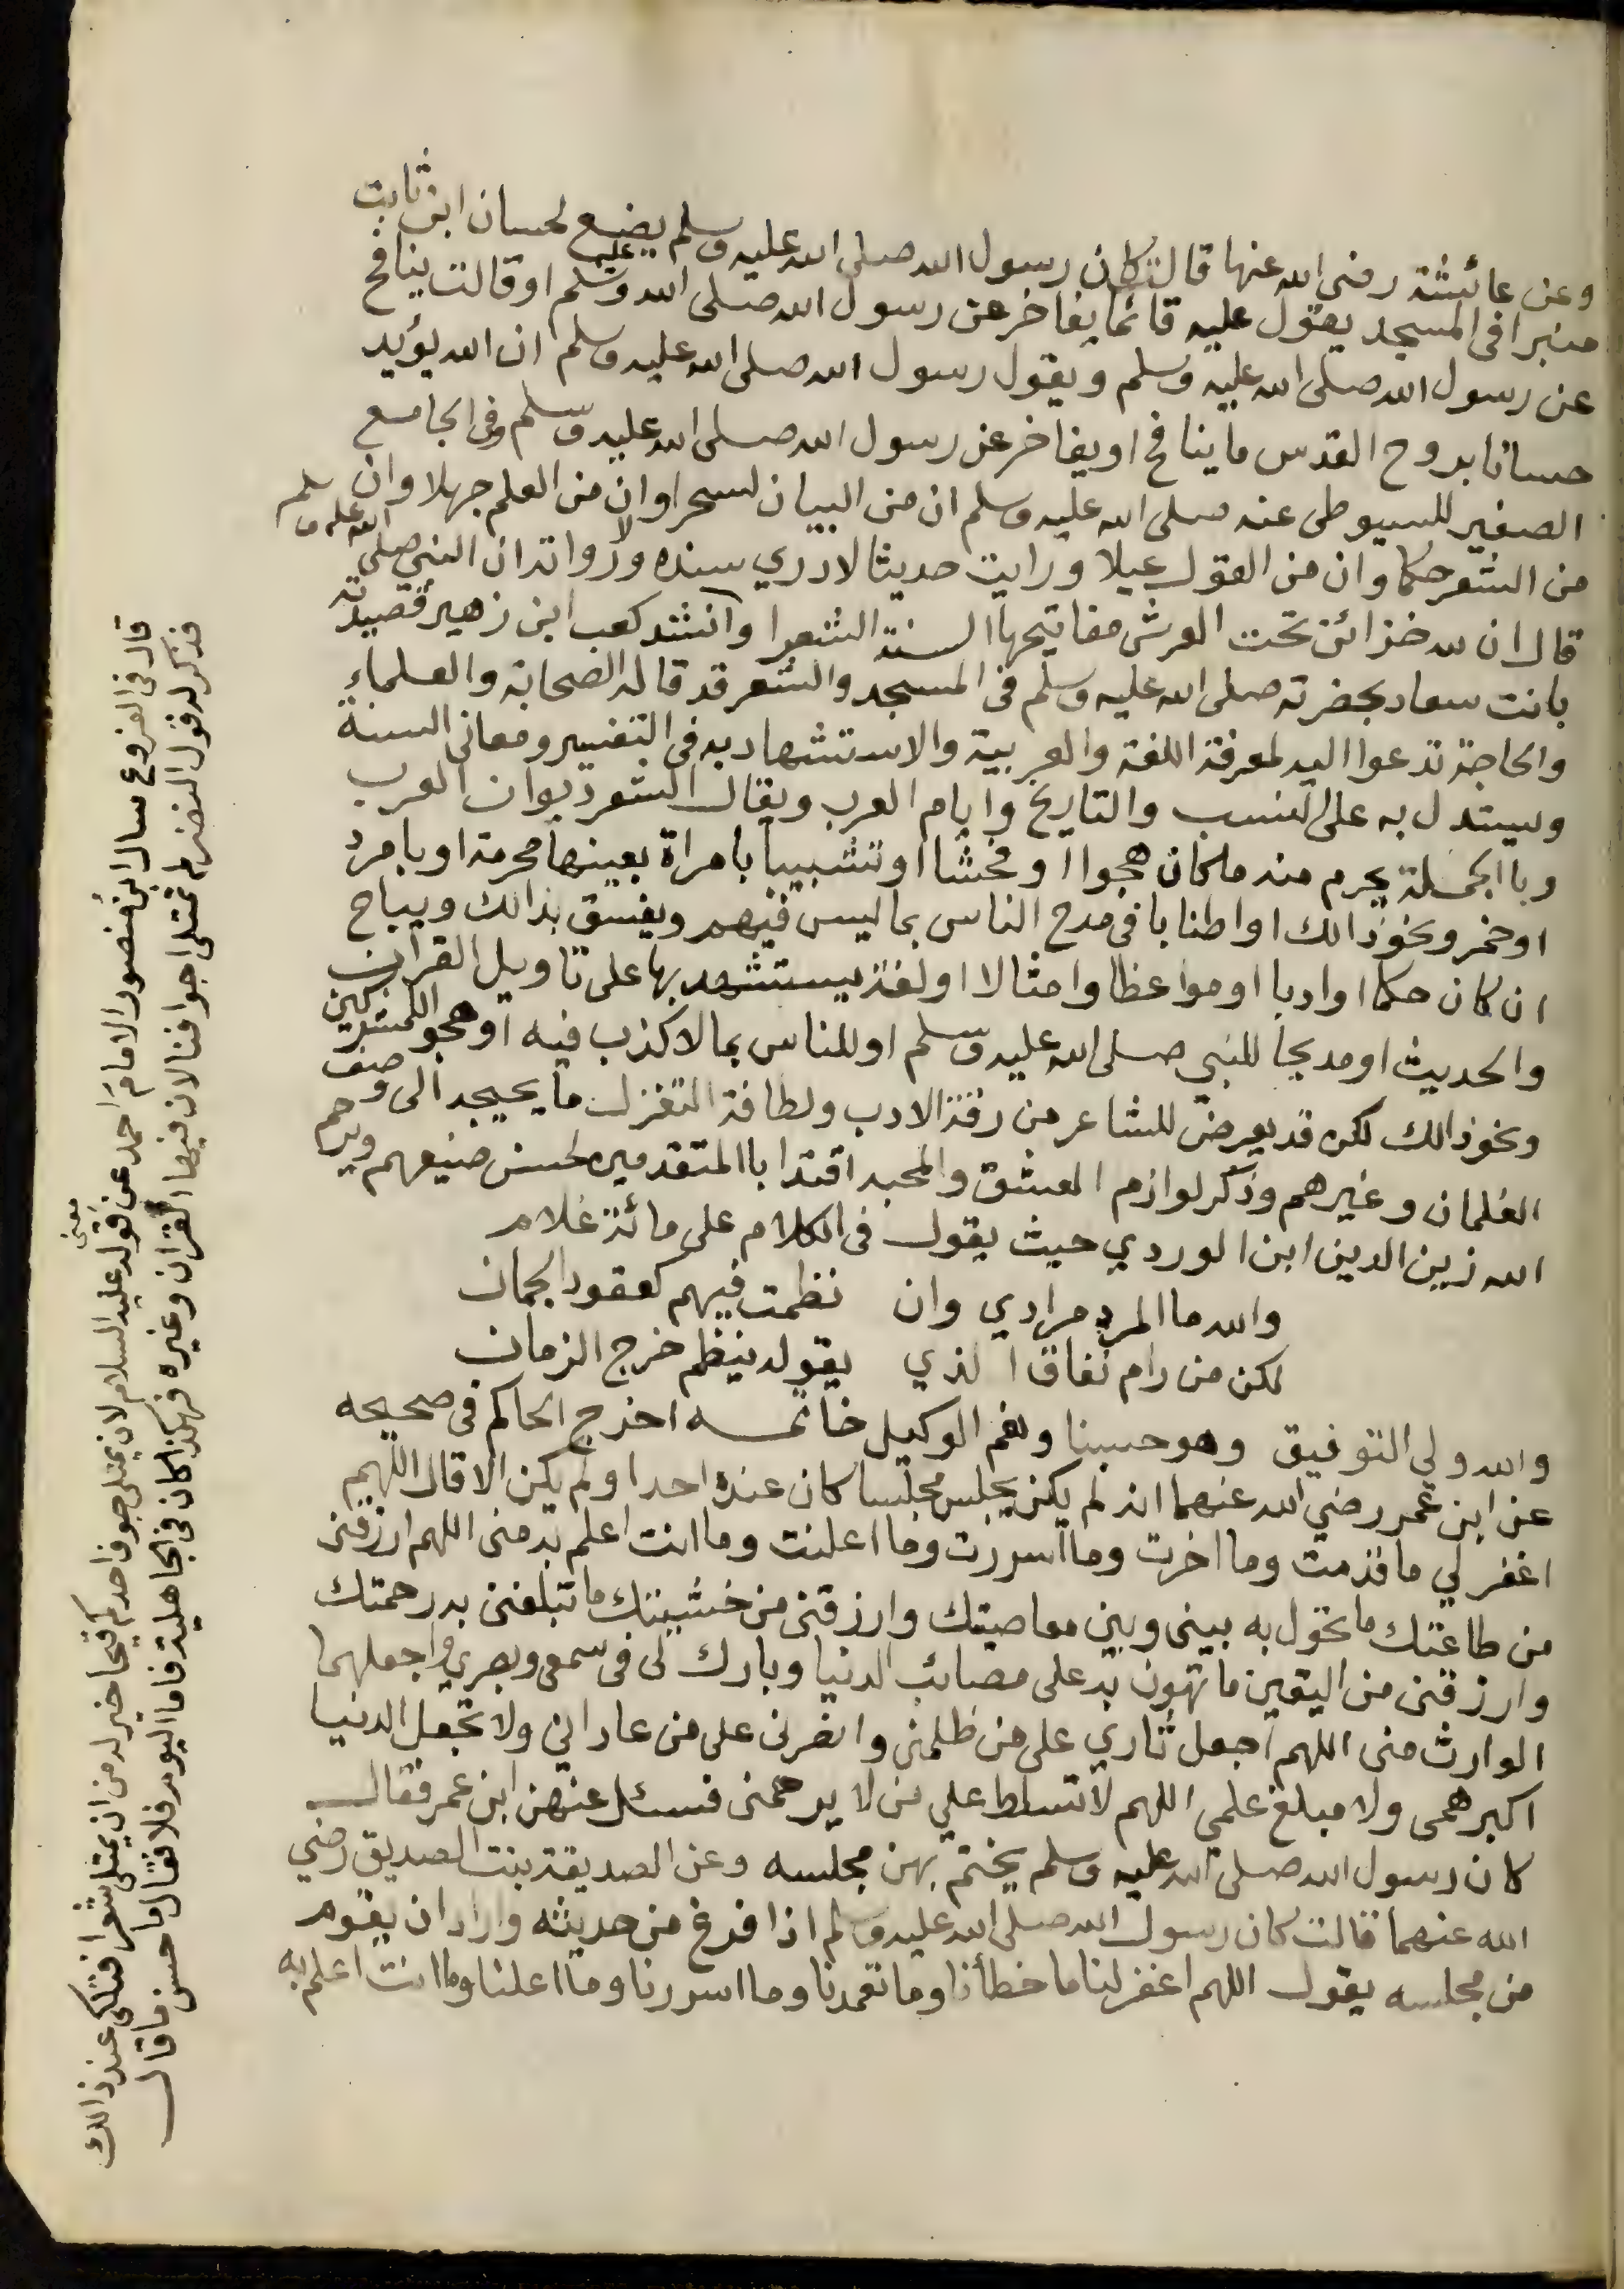 وعن عائشة رضي الله عنها قالت كان رسول الله صلى الله عليه وسلم يضع لحسان ابن ثابت
منبرا في المسجد يقول عليه قائما يفاخر عن رسول الله صلى الله عليه وسلم او قالت ينافح
عن رسول الله صلى الله عليه وسلم ويقول رسول الله صلى الله عليه وسلم ان الله يؤيد
حسانا بروح القدس ما ينافح او يفاخر عن رسول الله صلى الله عليه وسلم وفي الجامع
الصغير للسيوطي عنه صلى الله عليه وسلم ان من البيان لسحرا وان من العلم جهلا وان
من الشعر حكما وان من القول عيلا ورايت حديثا لا ادري سنده ولا رواته ان النبي صلى الله عليه وسلم
قال ان لله خزائن تحت العرش مفاتيحها السنة الشعرا وانشد كعب ابن زهير قصيدته
بانت سعاد بحضرته صلى الله عليه وسلم في المسجد والشعر قد قاله الصحابة والعلماء
والحاجة تدعوا اليه لمعرفة اللغة والعربية والاستشهاد به في التفسير ومعاني السنة
ويستدل به على النسب والتاريخ وايام العرب ويقال الشعر ديوان العرب
وبا الجملة يحرم منه ما كان هجوا او فحشا او تشبيبا بامراة بعينها محرمة او بامرد
او خمر ونحو ذالك او اطنابا في مدح الناس بما ليس فيهم ويفسق بذالك ويباح
ان كان حكما او ادبا او مواعظا وامثالا او لغة يستشهد بها على تاويل القران
والحديث او مديحا للنبي صلى الله عليه وسلم او للناس بما لا كذب فيه او هجو المشركين
ونحو ذالك لكن قد يعرض للشاعر من رقة الادب ولطافة التغزل ما يحيجه الى وصف
الغلمان وغيرهم وذكر لوازم العشق والمحبه اقتدا باالمتقدمين لحسن صنيعهم ويرحم
الله زين الدين ابن الوردي حيث يقول في الكلام على مائة غلام
والله ما المرد مرادي وان نظمت فيهم كعقود الجمان
لكن من رام نفاق الذي يقوله ينظم خرج الزمان
والله ولي التوفيق وهو حسبنا ونعم الوكيل خاتمه اخرج الحاكم في صحيحه
عن ابن عمر رضي الله عنهما انه لم يكن يجلس مجلسا كان عنده احدا ولم يكن الا قال اللهم
اغفر لي ما قدمت وما اخرت وما اسررت وما اعلنت وما انت اعلم به مني اللهم ارزقني
من طاعتك ما تحول به بيني وبين معاصيتك وارزقني من خشيتك ما تبلغني به رحمتك
وارزقني من اليقين ما تهون به على مصائب الدنيا وبارك لي في سمعي وبصري واجعلهما
الوارث مني اللهم اجعل ثاري على من ظلمني وانصرني على من عاداني ولا تجعل الدنيا
اكبر همي ولا مبلغ علمي اللهم لا تسلط علي من لا يرحمني فسئل عنهن ابن عمر فقال
كان رسول الله صلى الله عليه وسلم يختم بهن مجلسه وعن الصديقة بنت الصديق رضي
الله عنهما قالت كان رسول الله صلى الله عليه وسلم اذا فرغ من حديثه واراد ان يقوم
من مجلسه يقول اللهم اغفر لنا ما خطأنا وما تعمدنا وما اسررنا وما اعلنا وما انت اعلم به
قال في الفروع سال ابن منصور الامام احمد عن معنى قوله عليه السلام لان يمتلى جوف احدكم قيحا خير له من ان يمتلى شعرا فتلكى عند ذالك
فذكر له قول النضر لم تمتلى اجوافنا لان فيها القران وغيره فهكذا كان في الجاهلية فاما اليوم فلا فقال ما حسن ما قال